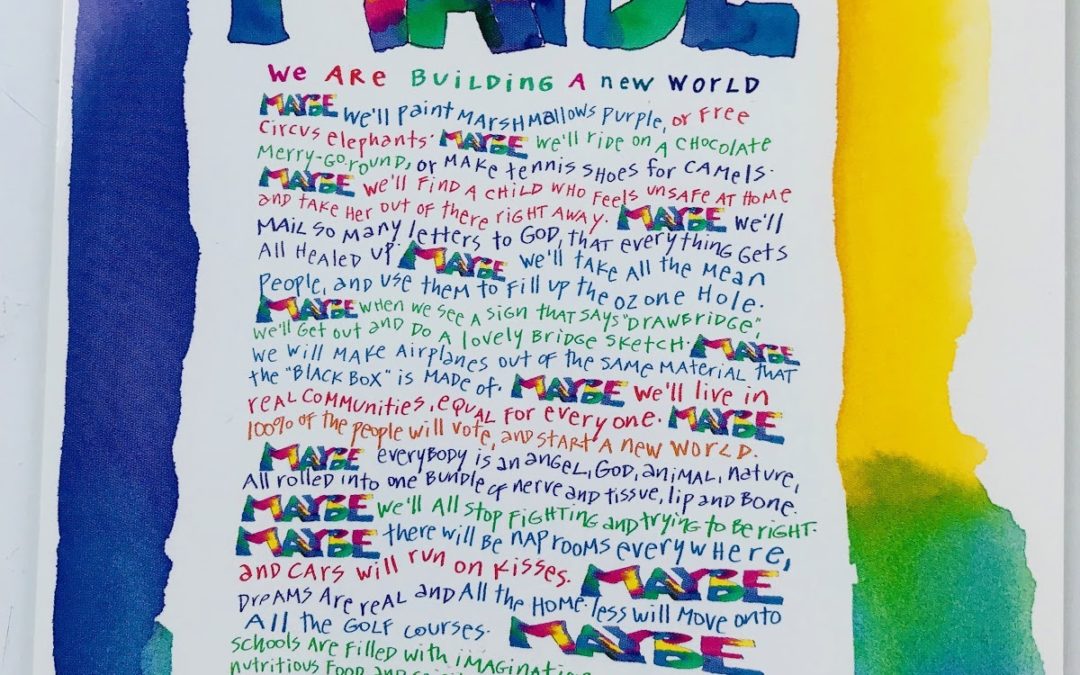 MAYBE
We ARe BUiLDiNG A new WORLD
MAYBE we'll paint MARSHMAllows purple, or free
circus elephants. MAYBE we'll ride on A CHOCOlate
Merry-Go-round, or MAKe tennis SHOes for CAMels.
MAYBE we'll FIND A CHILD WHO feels unsafe AT HOMe
and TAKe Her out of there riGHT AWAY. MAYBE we'll
MAIL SO MAny letters to GOD, THAT everything Gets
All Healed up. MAYBE we'll take All the Mean
People, and use them to Fill up the ozone Hole.
MAYBE when we see A SiGn THAT SAYS "DRAWBRiDGe",
we'll Get out and DO A lovely BRiDGe SKetCH. MAYBE
we will MAKe Airplanes out of the SAMe MATeriAL THAT
the "BLACK BOX" is MADe of. MAYBE we'll live in
reAL COMMUNITies, eQUAL for everyone. MAYBE
100% of the people will vote, and START A new WORLD.
MAYBE everyBODY is an anGeL, GOD, aniMAL, nature,
All rolled into one BUNDLe of nerve and tissue, lip and BONe.
MAYBE we'll All stop FiGHTinG and trying to Be riGHT.
MAYBE there will Be nAp rooms everywHere,
and CARS will run on Kisses. MAYBE
DReAMS ARe reAL and All the HOMe-less will MOVe onto
All the GOLF courses. MAYBE
schools ARe Filled with
nutritious FOOD and